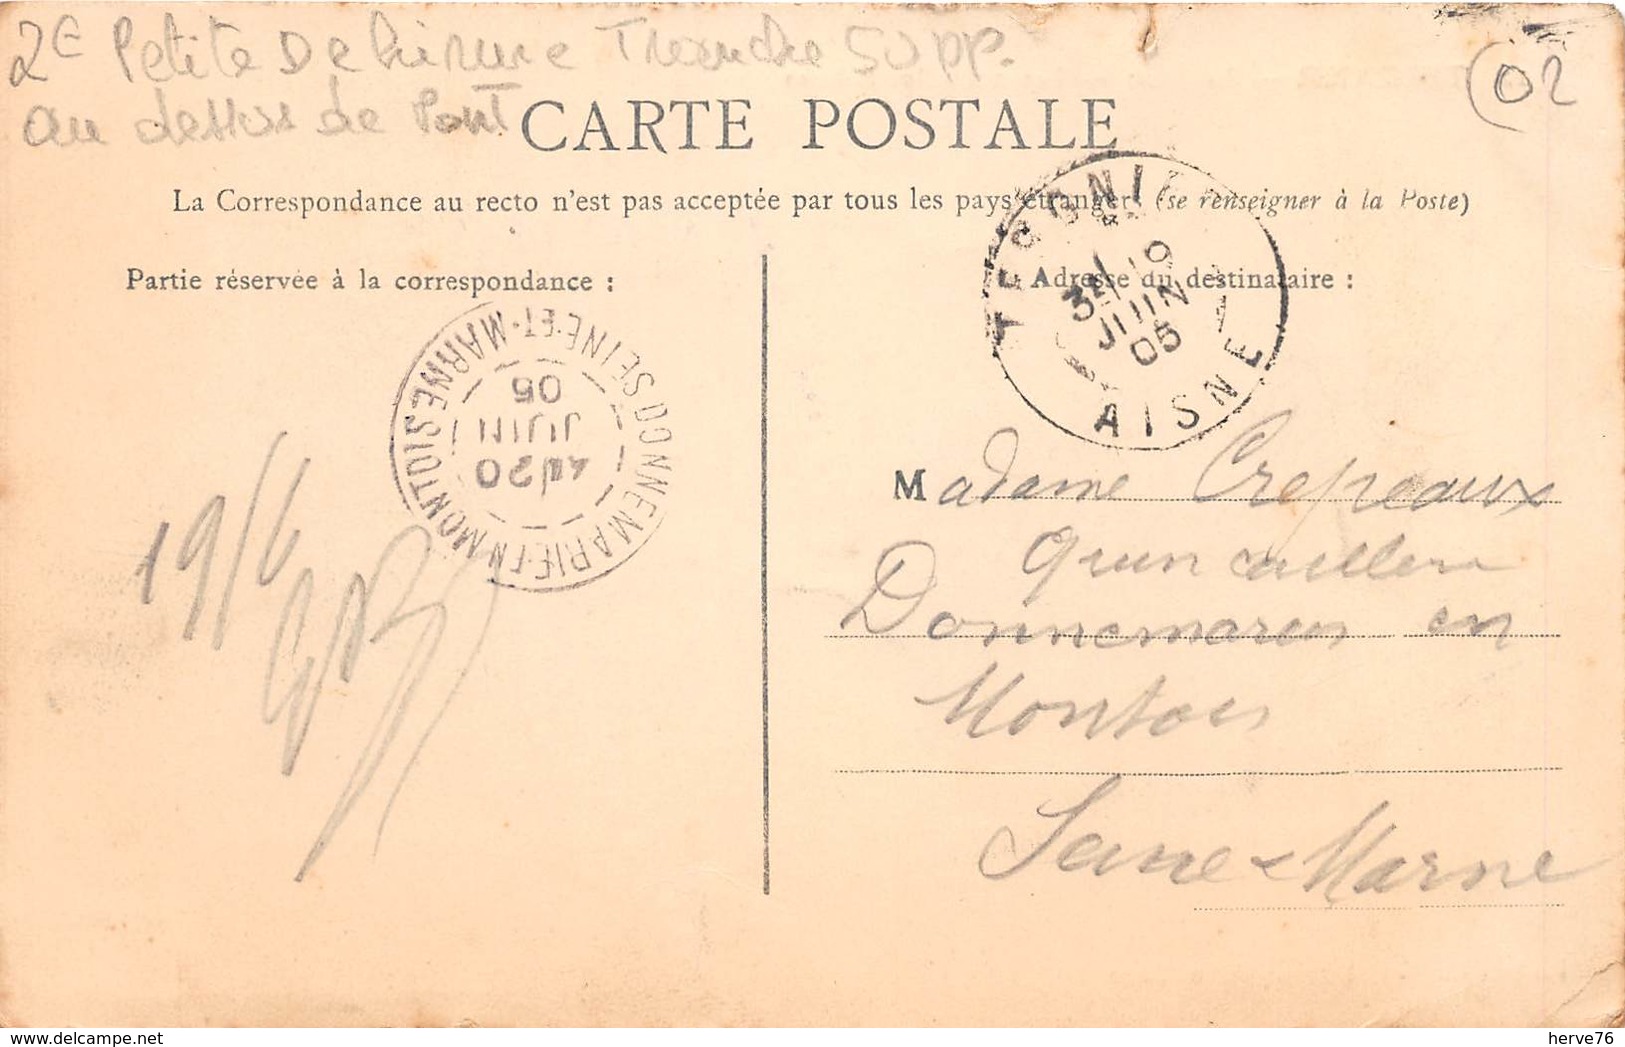 2E Petite Dechirure Tranche 50pp.
au dessus de Pont
02
CARTE POSTALE
La Correspondance au recto n'est pas acceptée par tous les pays étranger (se renseigner à la Poste)
Partie réservée à la correspondance :
Adresse du destinataire :
TERGNIER
3E 19
JUIN
05
AISNE
DONNEMARIE-EN-MONTOIS
SEINE-ET-MARNE
20
JUIN
05
19/6
Madame Crepeaux
Quincaillere
Donnemarie en
Montois
Seine & Marne
herve76